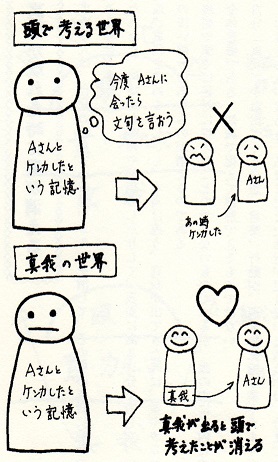 頭で考える世界
今度 Aさんに
会ったら
文句を言おう
Aさんと
ケンカしたと
いう記憶
Aさん
あの時
ケンカした
真我の世界
Aさんと
ケンカしたと
いう記憶
真我
Aさん
真我が出ると頭で
考えたことが消える